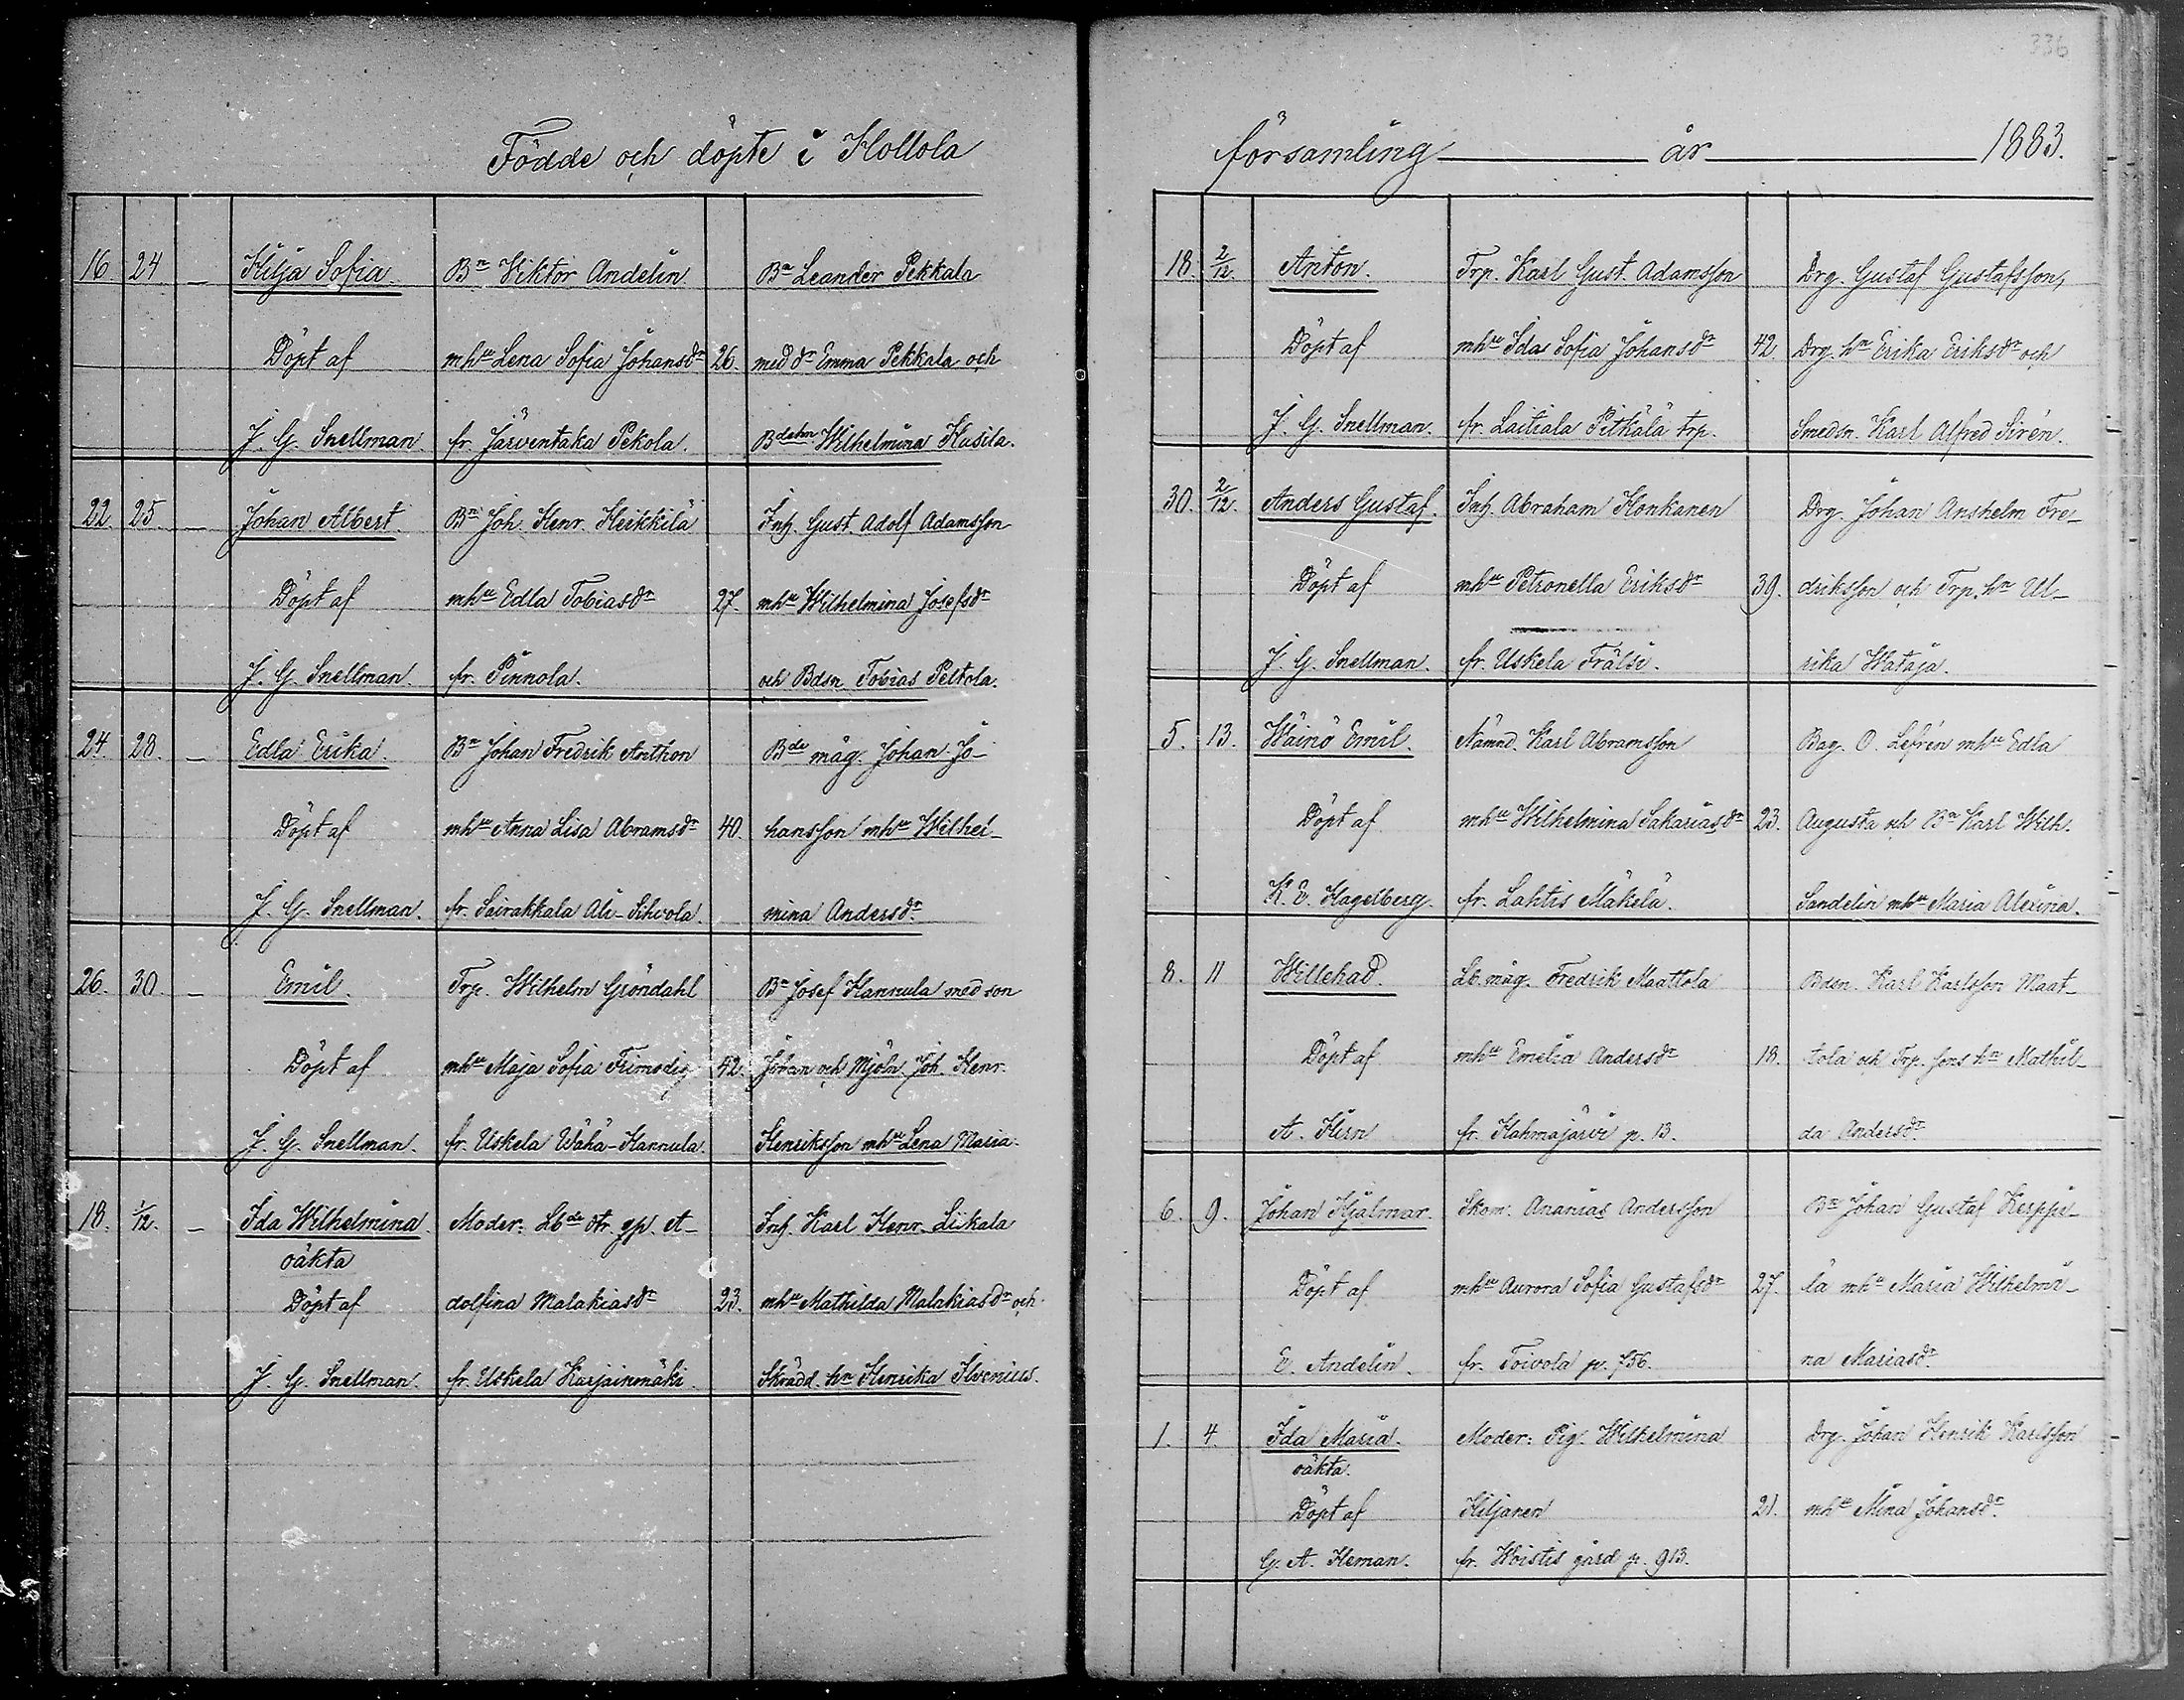 336
Födde och döpte i Hollola
16. 24 – Hilja Sofia. Bn Viktor Andelin Bn Leander Pekkala
Döpt af mhu Lena Sofia Johansdr 26. med dr Emma Pekkala och
J. G. Snellman. fr. Järventaka Pekola. Wilhelmina Kusila.
22. 25. – Johan Albert. Bn Joh. Henr. Heikkilä Inh. Gust. Adolf Adamsson
Döpt af mhu Edla Tobiasdr 27. mhu Wilhelmina Josefsdr
J. G. Snellman. fr. Pinnola. och Bdsn Tobias Peltola.
24. 28. – Edla Erika. Bn Johan Fredrik Anthon Bde måg. Johan Jo-
Döpt af mhu Anna Lisa Abramsdr 40. hansson mhu Wilhel-
J. G. Snellman. fr. Sairakkala Ali-Sihvola. mina Andersdr.
26. 30. – Emil. Trp. Wilhelm Gröndahl Bn Josef Hannula med son
Döpt af mhu Maja Sofia Frimodig 42. Johan och Mjöln. Joh. Henr.
J. G. Snellman. fr. Uskela Wähä-Hannula. Henriksson mhu Lena Maria.
18. 1/12. – Ida Wilhelmina. Moder: Lbde dtr. gp. A- Inh. Karl Henr. Liikala
oäkta
Döpt af dolfina Malakiasdr 23. mhu Mathilda Malakiasdr och
J. G. Snellman. fr. Uskela Harjainmäki Skrädd. hn Henrika Ilvenius.
församling år 1883.
18. 2/12 Anton. Trp. Karl Gust. Adamsson Drg. Gustaf Gustafsson,
Döpt af mhu Ida Sofia Johansdr 42 Drg. hn Erika Eriksdr och
J. G. Snellman. fr. Laitiala Pitkälä trp. Smedsn. Karl Alfred Sirén.
30. 2/12. Anders Gustaf. Inh. Abraham Honkanen Drg. Johan Anshelm Fre-
Döpt af mhu Petronella Eriksdr 39. driksson och Trp. hn Ul-
J. G. Snellman. fr. Uskela Frälsi. rika Wataja.
5. 13. Wäinö Emil. Nämnd. Karl Abramsson Bag. O. Lefrén mhu Edla
Döpt af mhu Wilhelmina Sakariasdr 23. Augusta och Bn Karl Wilh.
K. E. Hagelberg. fr. Lahtis Mäkelä. Sandelin mhu Maria Alexina.
8. 11 Willehad. Lb. måg. Fredrik Maattola Bdsn. Karl Karlsson Maat-
Döpt af mhu Emelia Andersdr 18. tola och Trp. sons hn Mathil-
A. Hirn fr. Hahmajärvi p. 13. da Andersdr
6. 9. Johan Hjalmar. Skom. Ananias Andersson Bn Johan Gustaf Kerppi-
Döpt af mhu Aurora Sofia Gustafsdr 27. lä mhu Maria Wilhelmi-
E. Andelin. fr. Toivola p. 756. na Mariasdr.
1. 4. Ida Maria. Moder: Pig. Wilhelmina Drg. Johan Henrik Karlsson
oäkta.
Döpt af Kiljanen 21. mhu Mina Johansdr.
G. A. Heman. fr. Woistis gård p. 913.